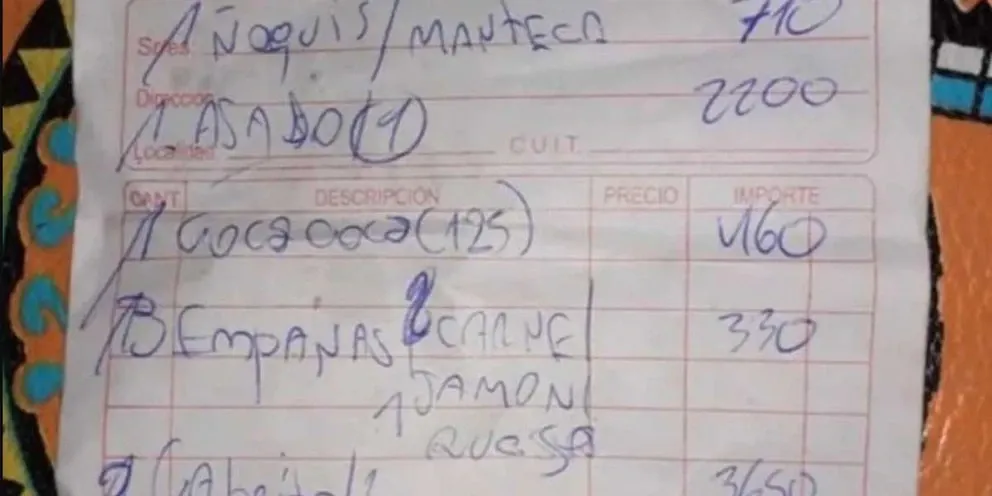 Sres. 1 ÑOQUIS/MANTECA 710
Dirección
1 ASADO (1) 2200
Localidad CUIT
CANT. DESCRIPCIÓN PRECIO IMPORTE
1 Coca coca (125) 460
3 EMPANAS 2 CARNE 330
1 JAMON
QUESO
3650